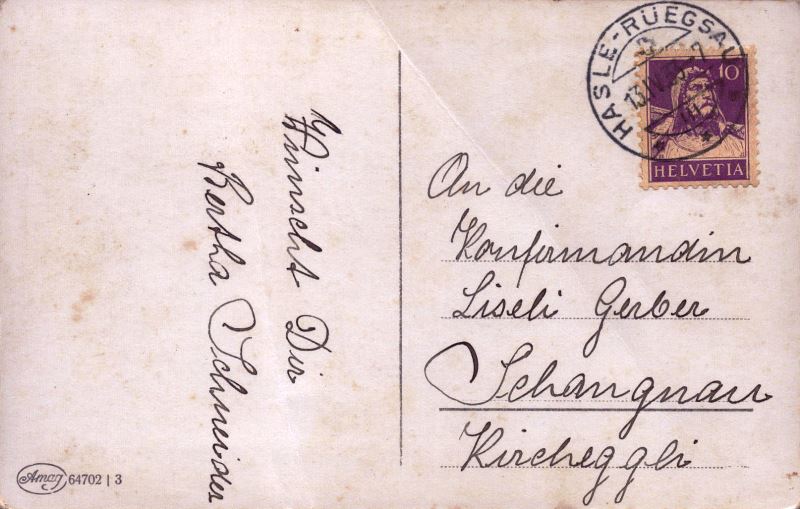 Wünscht Dir
Bertha Schneider
Amag 64702 | 3
HASLE-RÜEGSAU
10
HELVETIA
An die
Konfirmandin
Liseli Gerber
Schangnau
Kircheggli